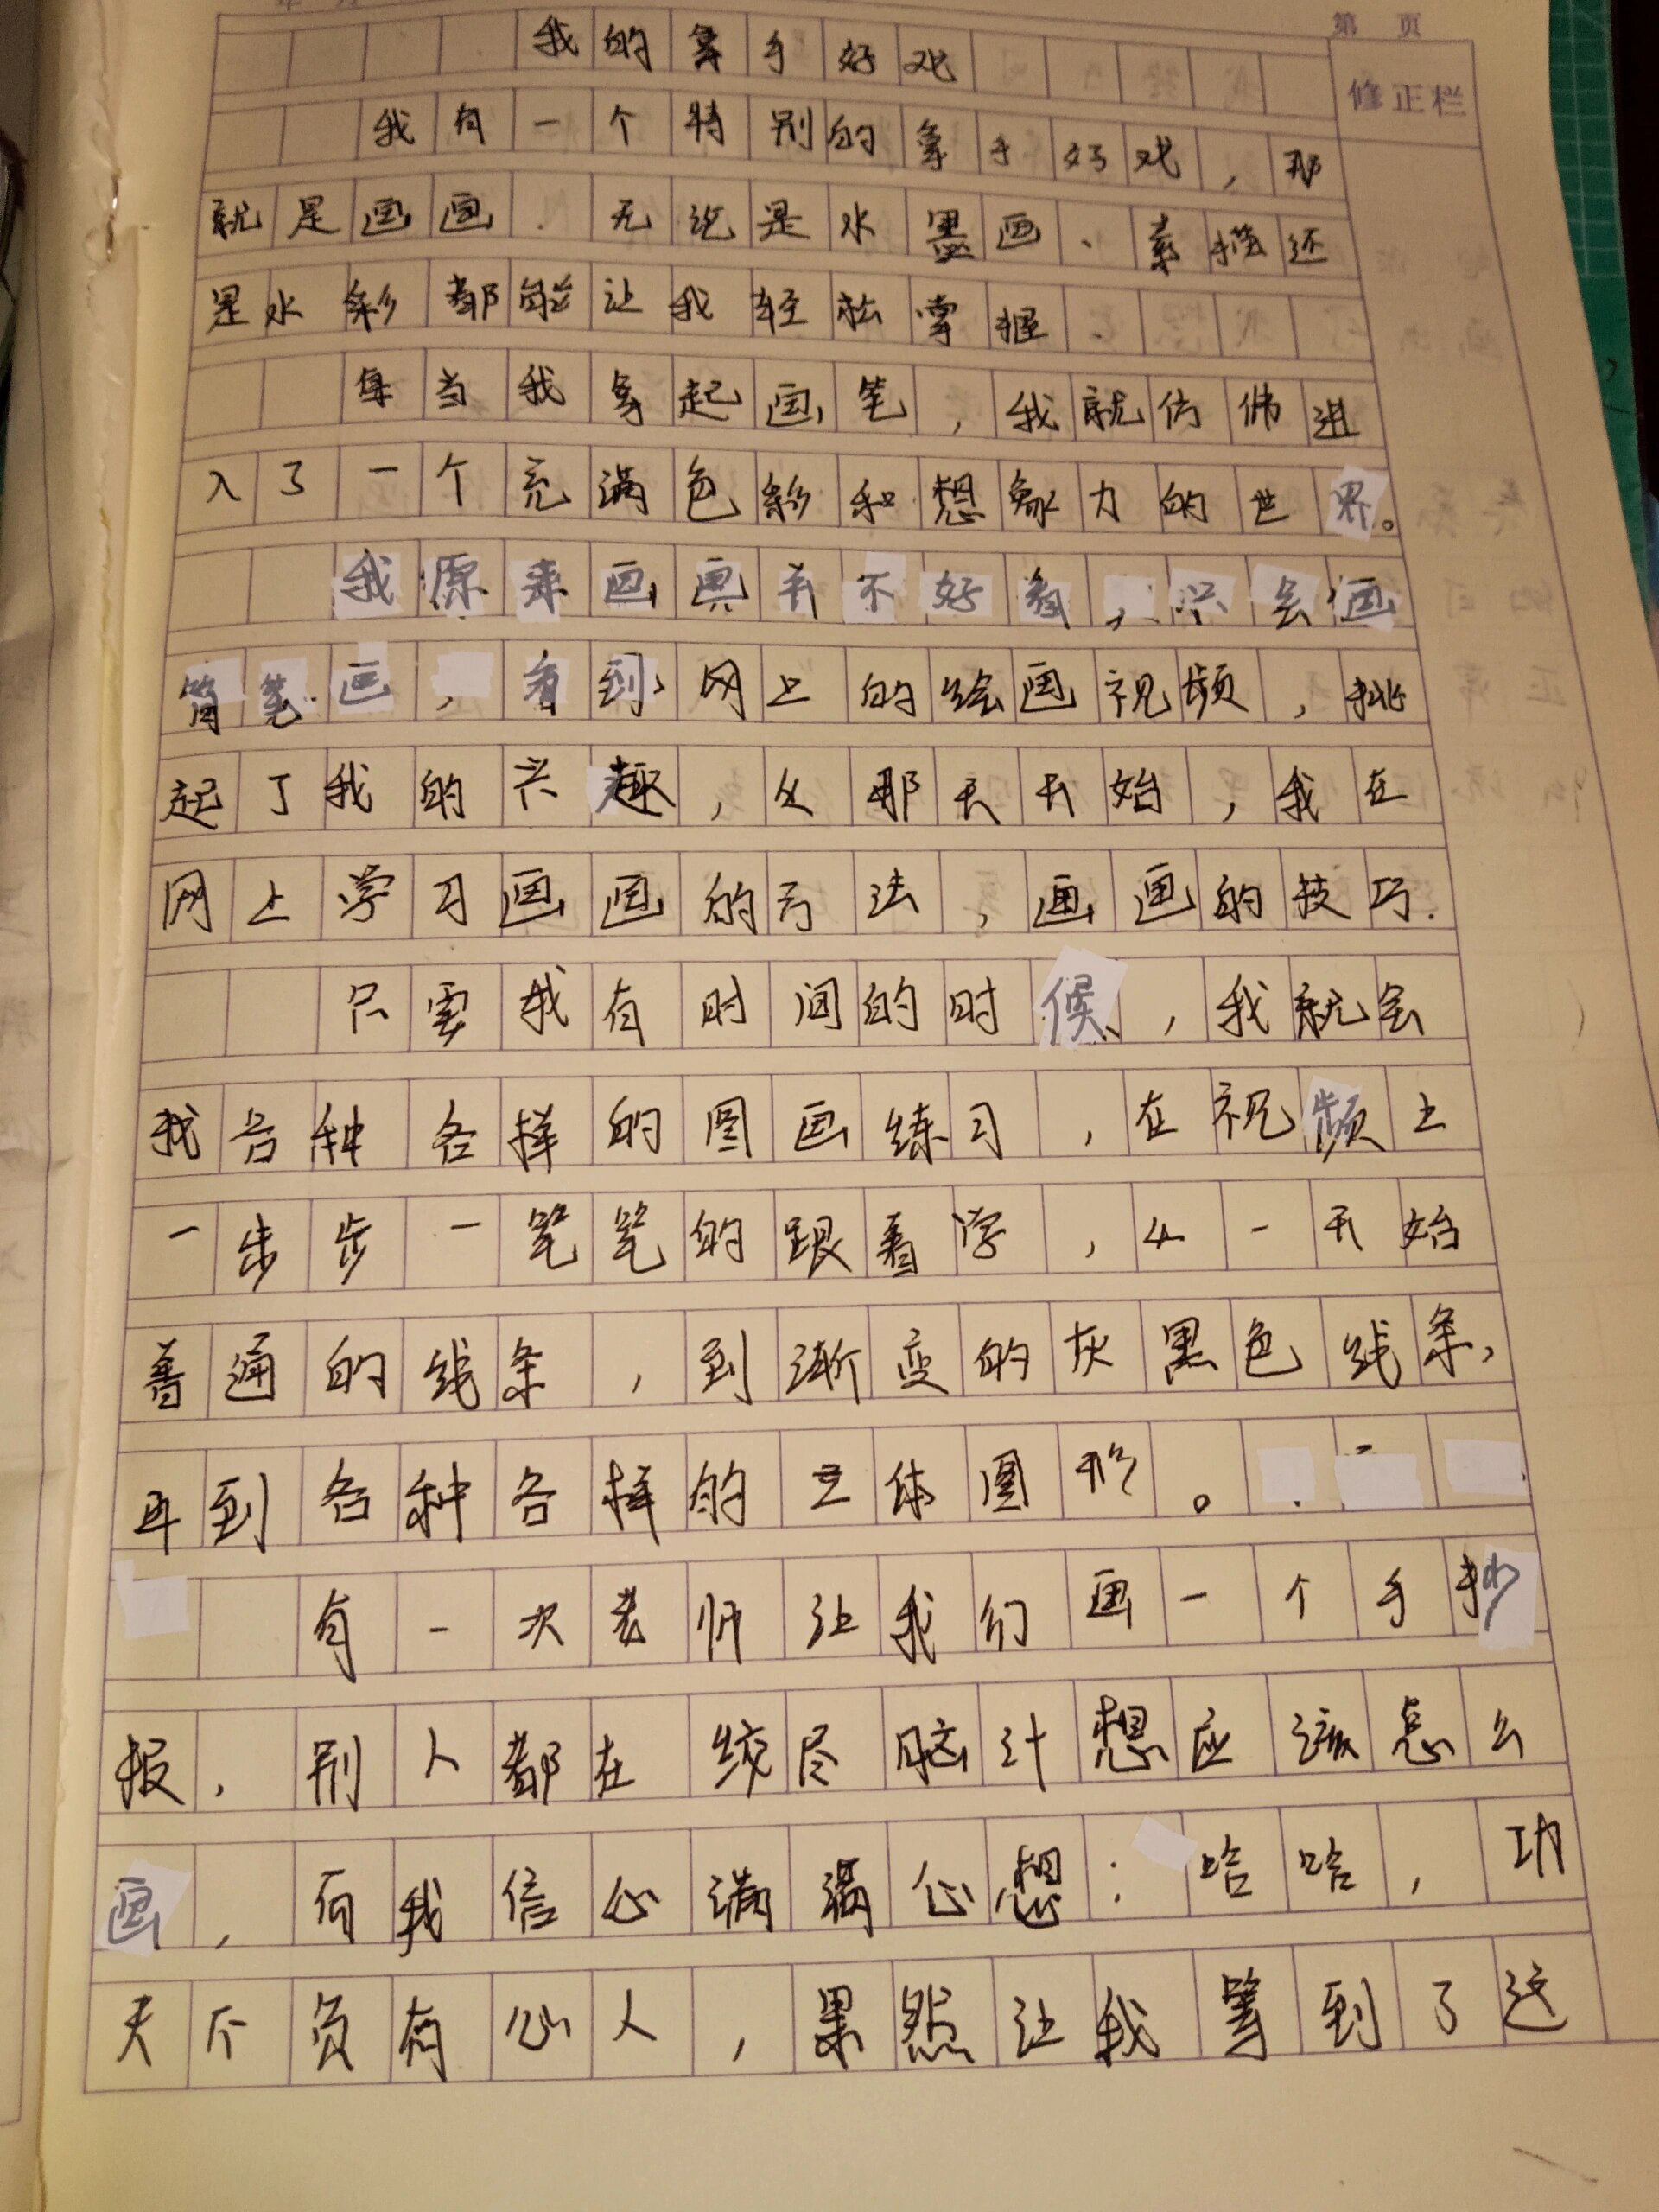 第 页
修正栏
我的拿手好戏
我有一个特别的拿手好戏，那
就是画画.无论是水墨画、素描还
是水彩都能让我轻松掌握.
每当我拿起画笔，我就仿佛进
入了一个充满色彩和想象力的世界。
我原来画画并不好看，只会画
简笔画，看到网上的绘画视频，挑
起了我的兴趣，从那天开始，我在
网上学习画画的方法，画画的技巧.
只要我有时间的时候，我就会
找各种各样的图画练习，在视频上
一步步一笔笔的跟着学，从一开始
普通的线条，到渐变的灰黑色线条，
再到各种各样的立体图形。
有一次老师让我们画一个手抄
报，别人都在绞尽脑汁想应该怎么
画，而我信心满满心想：哈哈，功
天不负有心人，果然让我等到了这